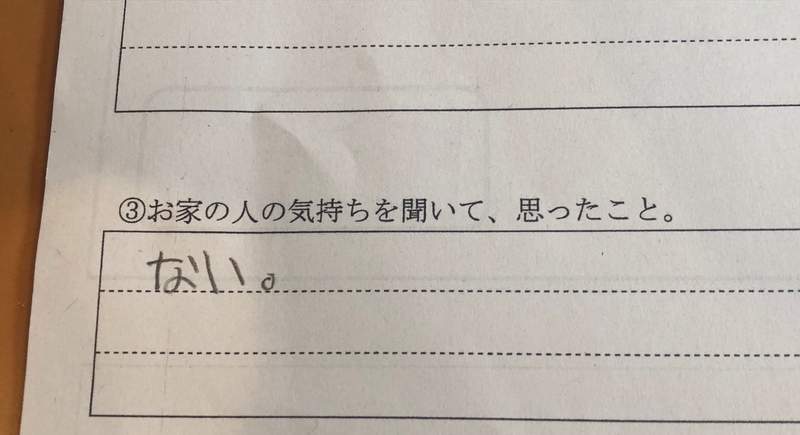 ③お家の人の気持ちを聞いて、思ったこと。
ない。